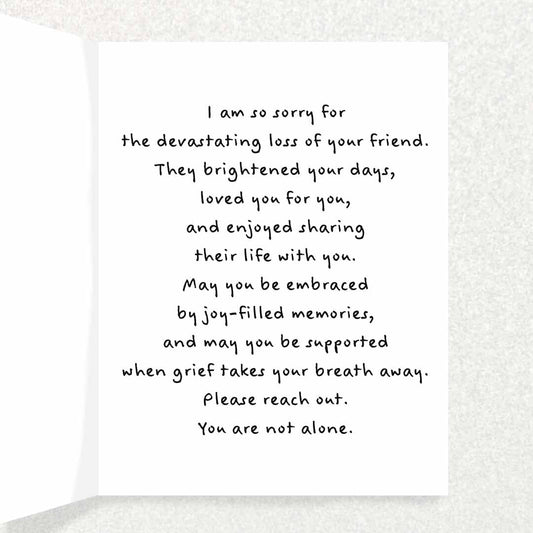 I am so sorry for
the devastating loss of your friend.
They brightened your days,
loved you for you,
and enjoyed sharing
their life with you.
May you be embraced
by joy-filled memories,
and may you be supported
when grief takes your breath away.
Please reach out.
You are not alone.